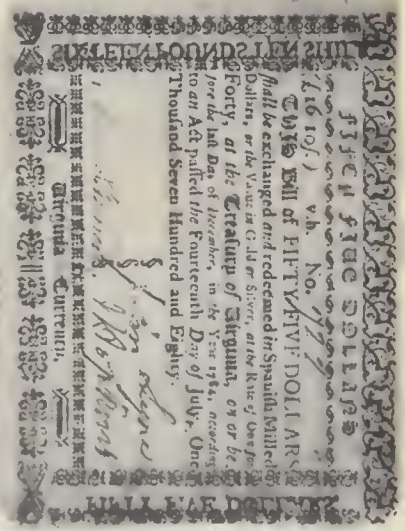 SIXTEEN POUNDS TEN SHILL
FIFTY FIVE DOLLARS
(£16 10s.) v.b. No.
THIS Bill of FIFTY-FIVE DOLLARS
shall be exchanged and redeemed in Spanish Milled
Dollars, or the Value in Gold or Silver, at the Rate of One for
Forty, at the Treasury of Virginia, on or be-
fore the last Day of December, in the Year 1784, according
to an Act passed the Fourteenth Day of July, One
Thousand Seven Hundred and Eighty.
Virginia Currency.
FIFTY FIVE DOLLARS